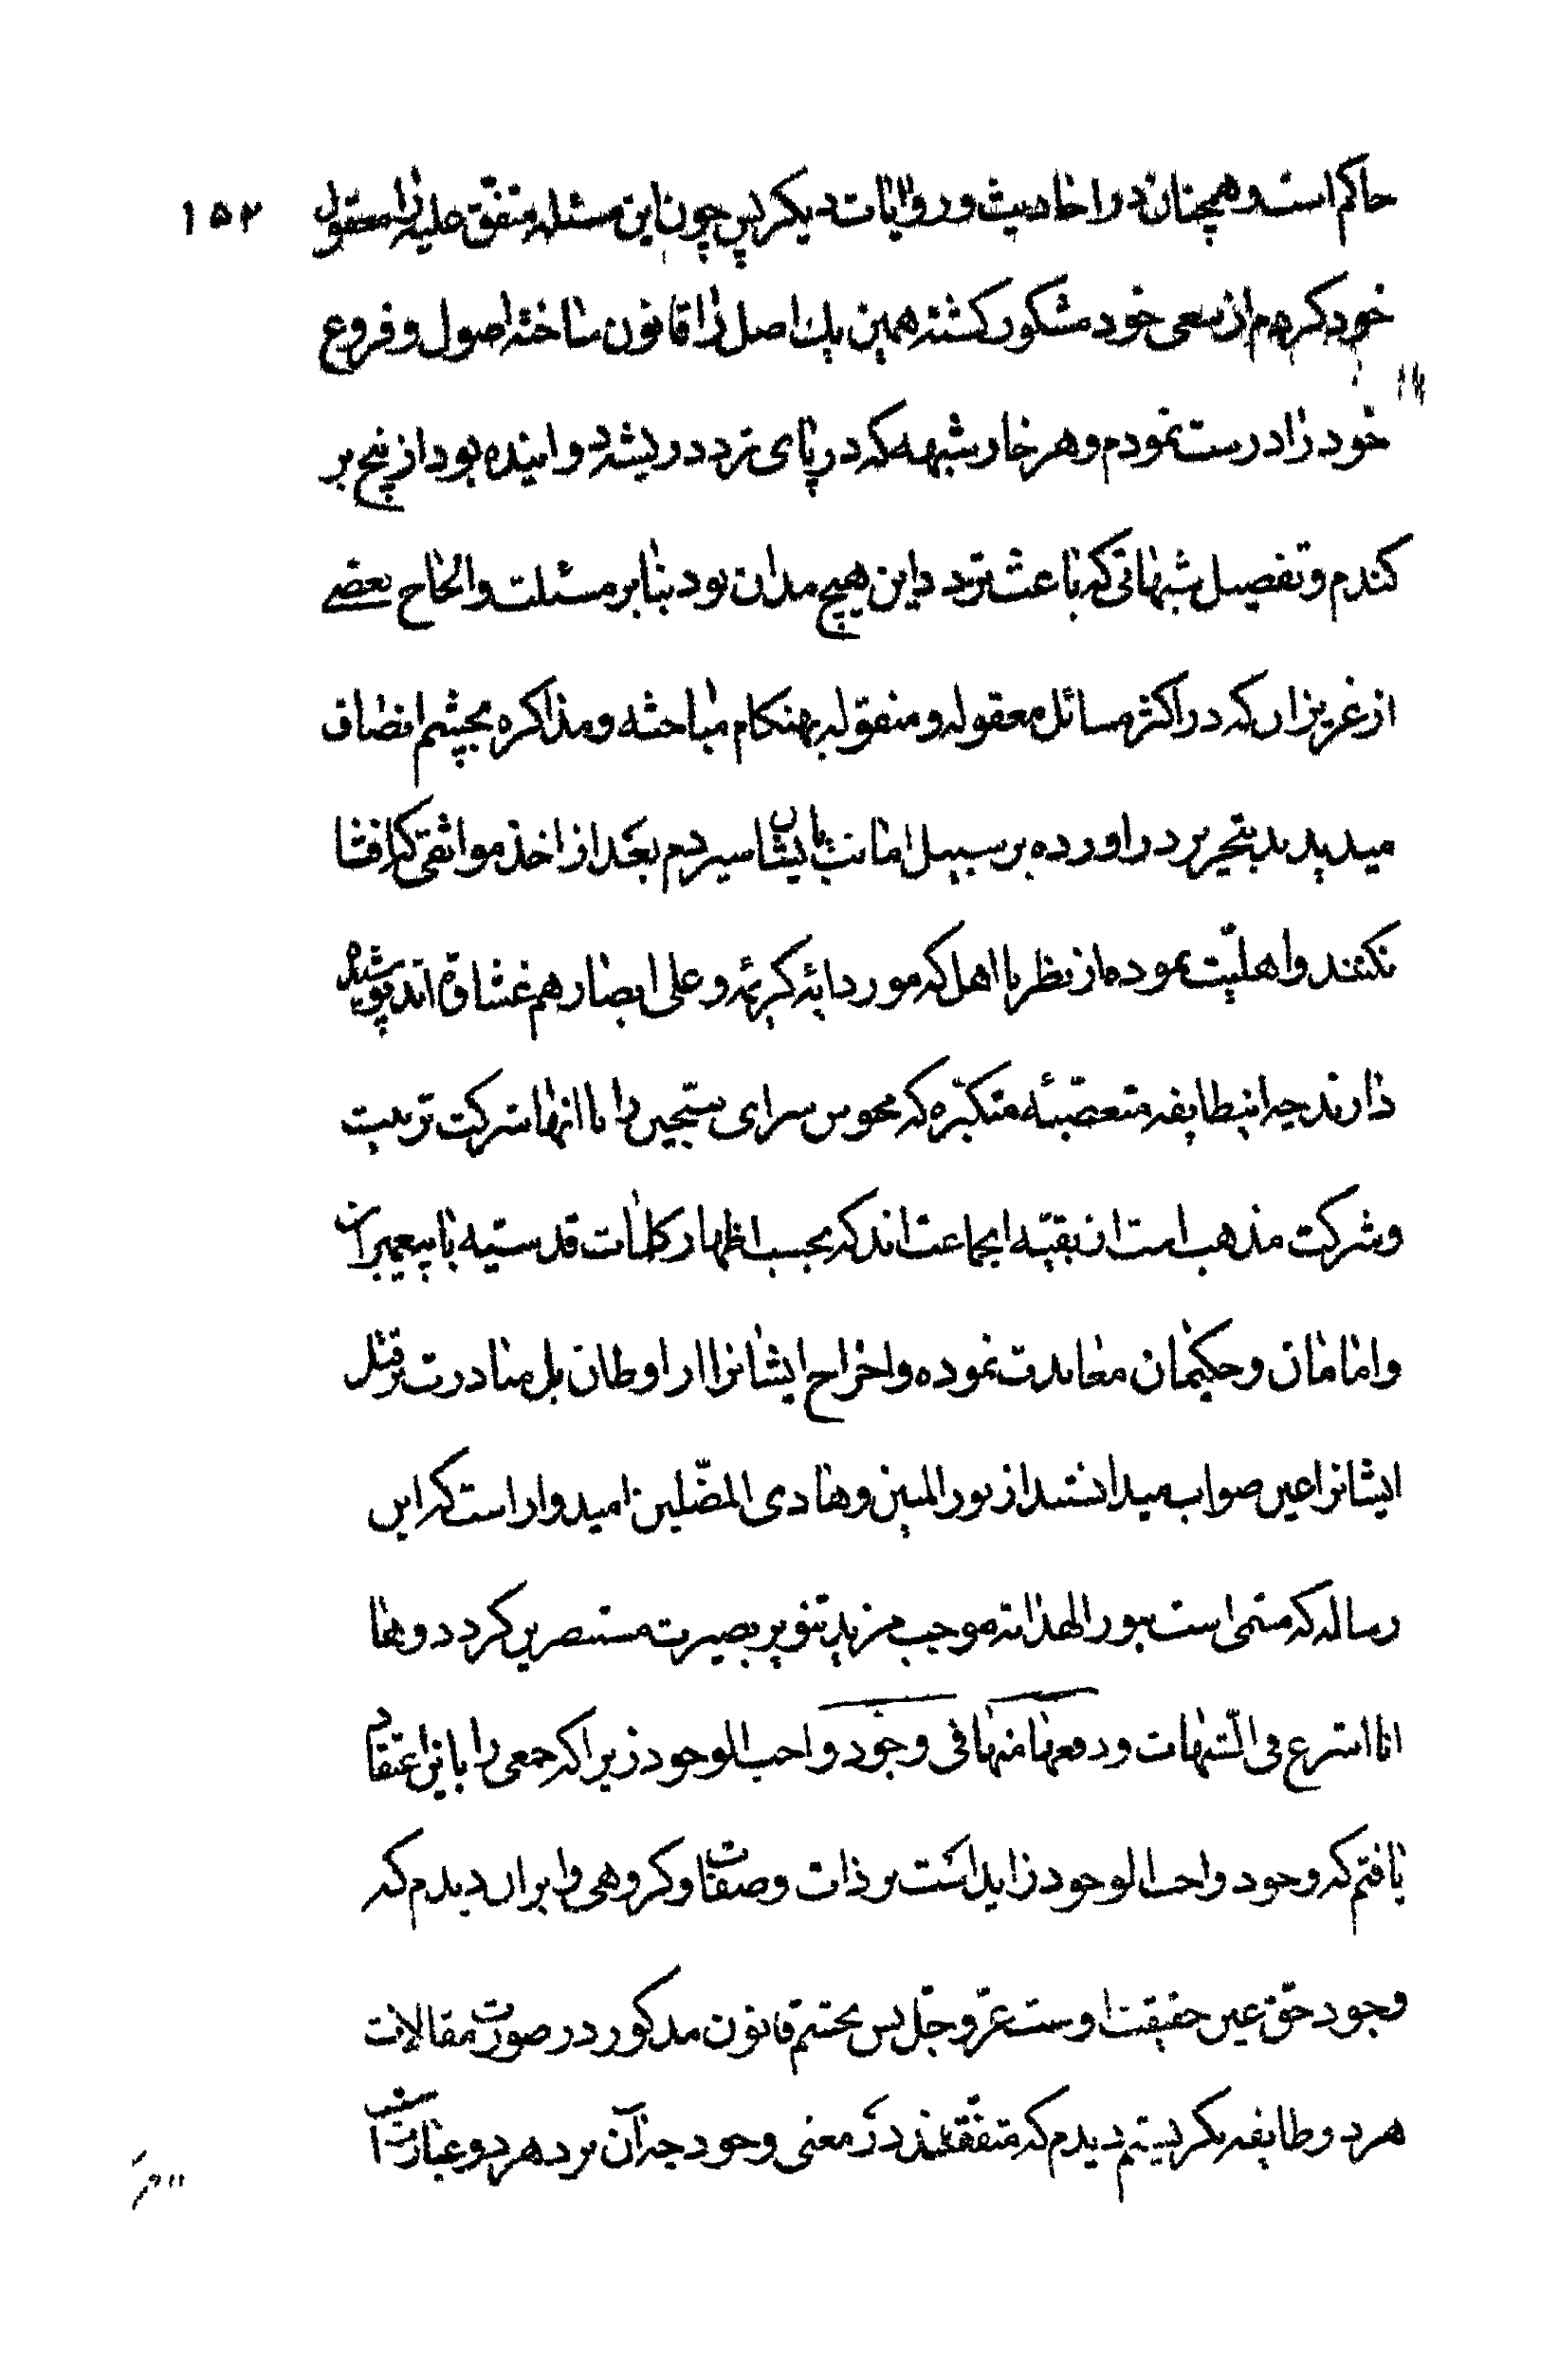 حاکم است و همچنان در احادیث و روایات دیکر پس چون این مسئله متفق علیه را معقول ۱۵۲
خود کردم از سعی خود مشکور کشته همین یک اصل را قانون ساخته اصول و فروع
خود را درست نمودم و هر خار شبهه که در پای تردد در پیشه دواینده بود از بیخ بر
کندم و تفصیل شبهاتی که باعث تردد این هیچ مدان بود بنابر مسئلت و الحاح بعضے
از عزیزان که در اکثر مسائل معقوله و منقوله بهنکام مباحثه و مذاکره بچشم انصاف
میدیدند بتحریر دراورده بر سبیل امانت بایشان سپردم بعد از اخذ مواثقی که افشا
نکنند و اهلیّت نموده از نظر نااهل که مورد ایهٔ کریمهٔ و علی ابصارهم غشاوة اند پوشیده
دارند چه اینطایفه متعصّبهٔ متکبّره که محبوس سرای سجین را با انها شرکت تربیت
و شرکت مذهب است از بقیّه انجماعت اند که بحسب اظهار کلمات قدسیّه با پیغمبران
و امامان و حکیمان معاندت نموده و اخراج ایشانرا از اوطان بل مبادرت بر قتل
ایشانرا عین صواب میدانستند از نور المبین و هادی المضلّین امیدوار است که این
رساله که مسمّی است بنور الهدایه موجب مزید تنویر بصیرت مستبصرین کردد و ها
انا اشرع فی الشّبهات و دفعها منها فی وجود واجب الوجود زیرا که جمعی را باین اعتقاد
یافتم که وجود واجب الوجود زاید است بر ذات و صفات او و کروهی را بر ان دیدم که
وجود حق عین حقیقت اوست عزّ و جلّ پس بچشم قانون مذکور در صورت مقالات
هر دو طایفه نکریستم دیدم که متفّقند در معنی وجود چه آن نزد هر دو عبارت